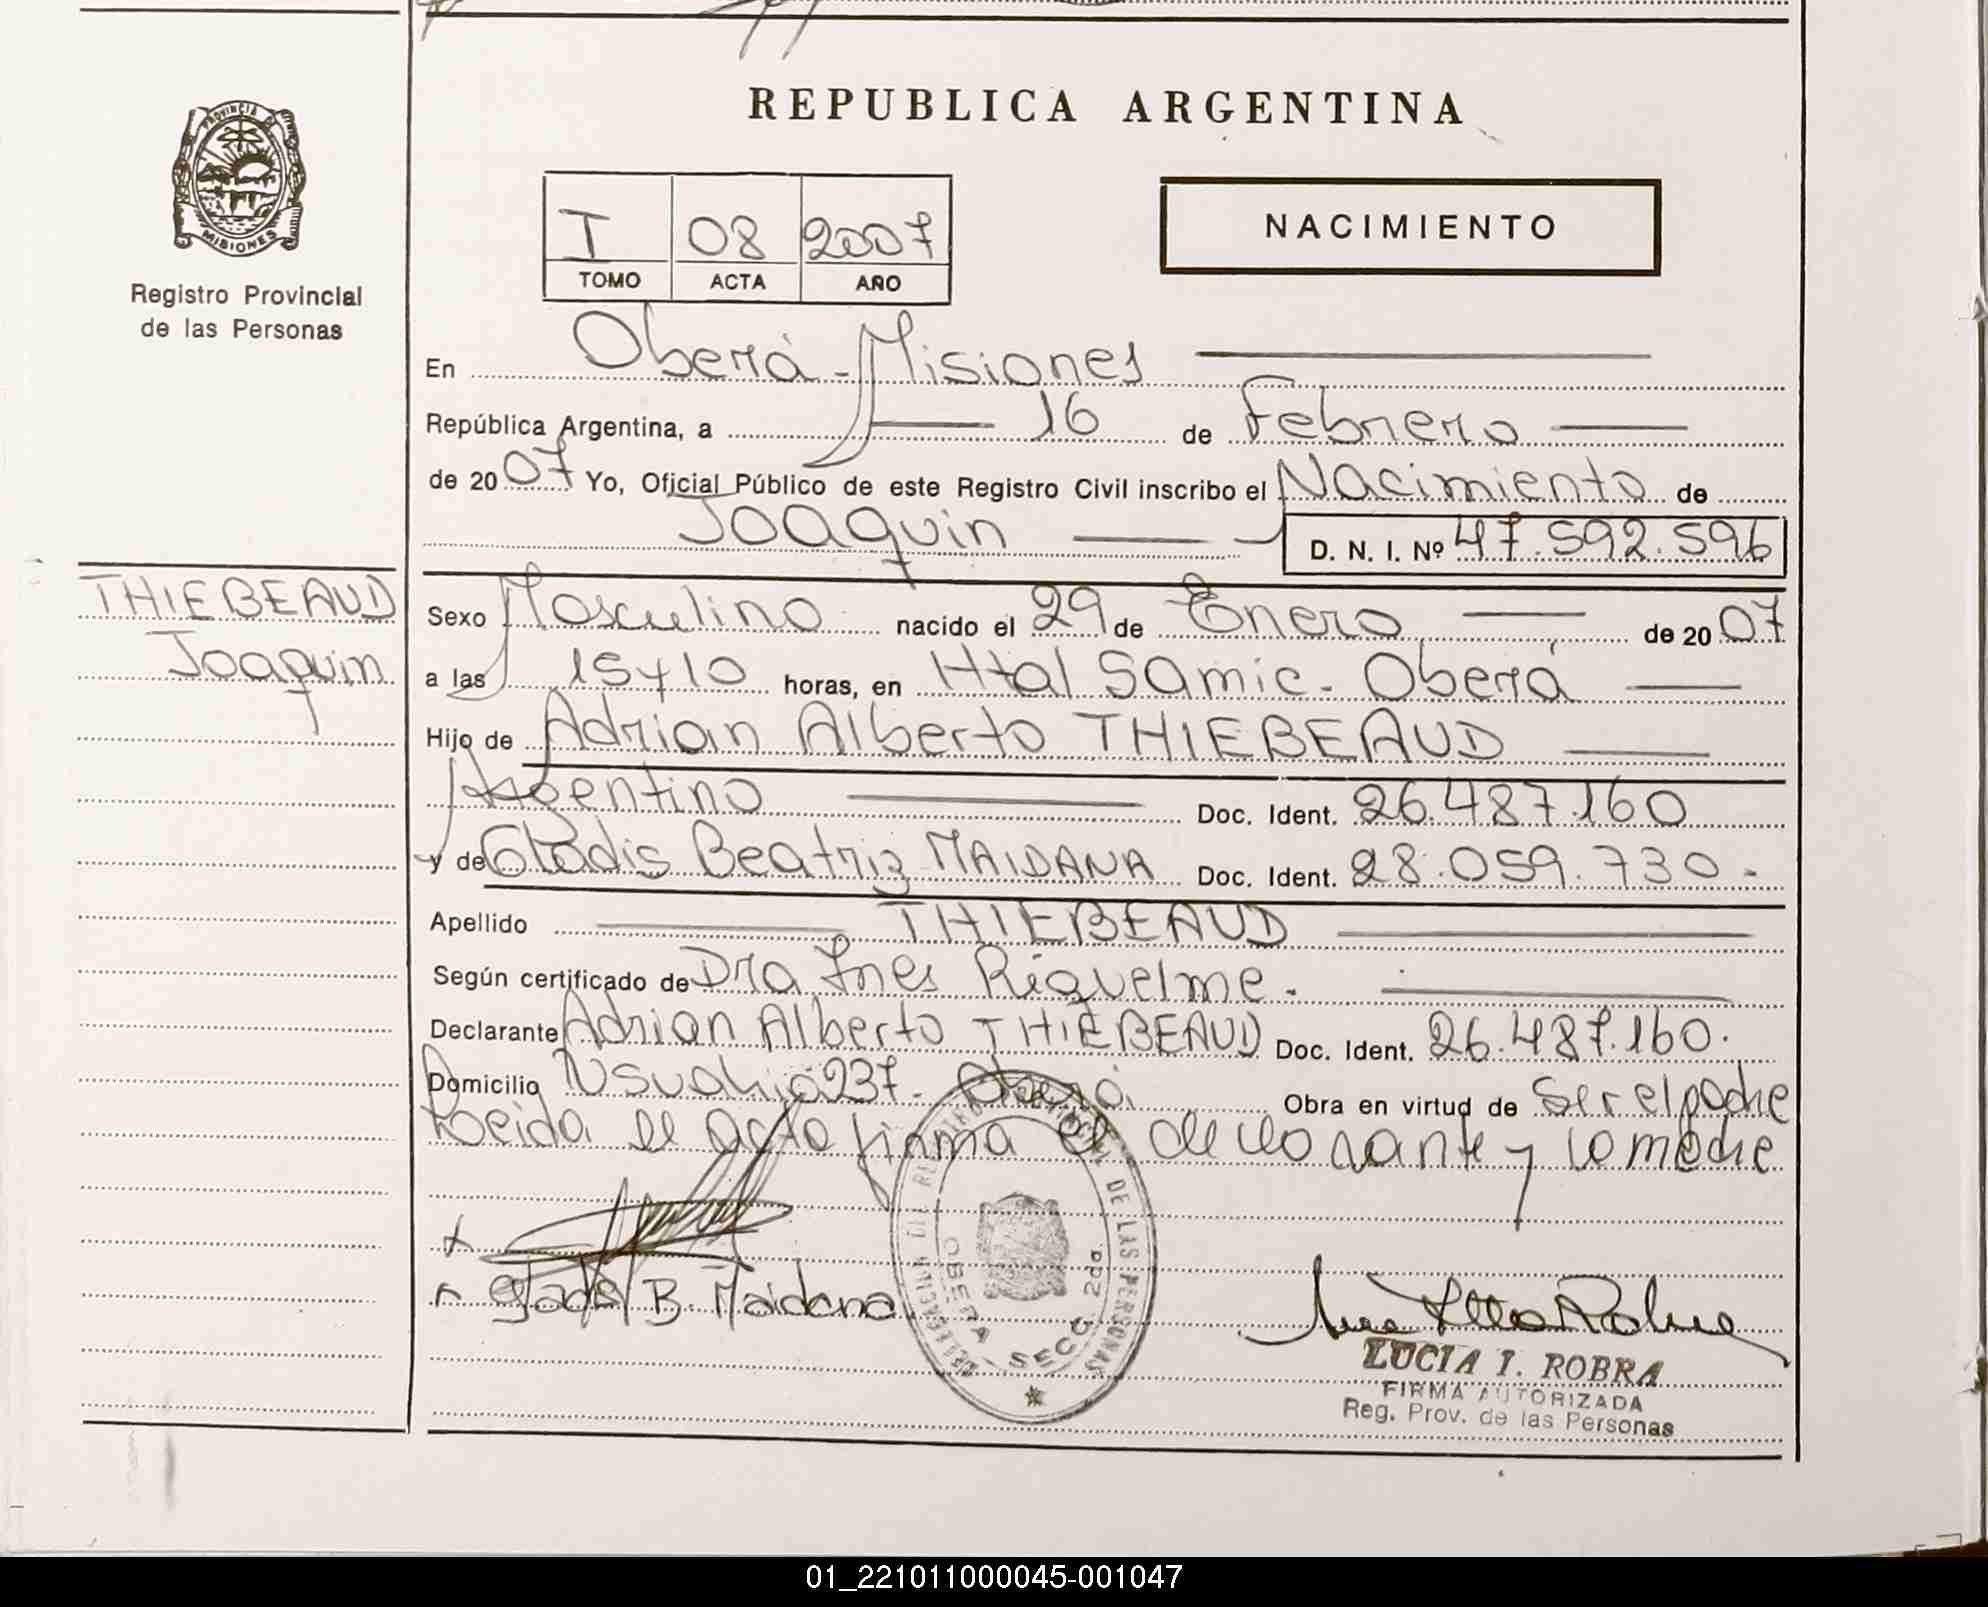 REPUBLICA ARGENTINA
PROVINCIA DE
MISIONES
Registro Provincial
de las Personas
I 08 2007
TOMO ACTA AÑO
NACIMIENTO
En Oberá - Misiones
República Argentina, a 16 de Febrero
de 2007 Yo, Oficial Público de este Registro Civil inscribo el Nacimiento de
Joaquin D. N. I. Nº 47.592.596
THIEBEAUD
Joaquin
Sexo Masculino nacido el 29 de Enero de 2007
a las 15 y 10 horas, en Htal Samic - Oberá
Hijo de Adrian Alberto THIEBEAUD
Argentino Doc. Ident. 26.487.160
y de Gladis Beatriz MAIDANA Doc. Ident. 28.059.730.-
Apellido THIEBEAUD
Según certificado de Dra Ines Riquelme.
Declarante Adrian Alberto THIEBEAUD Doc. Ident. 26.487.160.
Domicilio Usuahia 237. Oberá. Obra en virtud de ser el padre
Leida el acta firma el declarante y la madre
B. Maidana
DE LAS PERSONAS
OBERA SECC. 2da.
LUCIA I. ROBRA
FIRMA AUTORIZADA
Reg. Prov. de las Personas
01_221011000045-001047